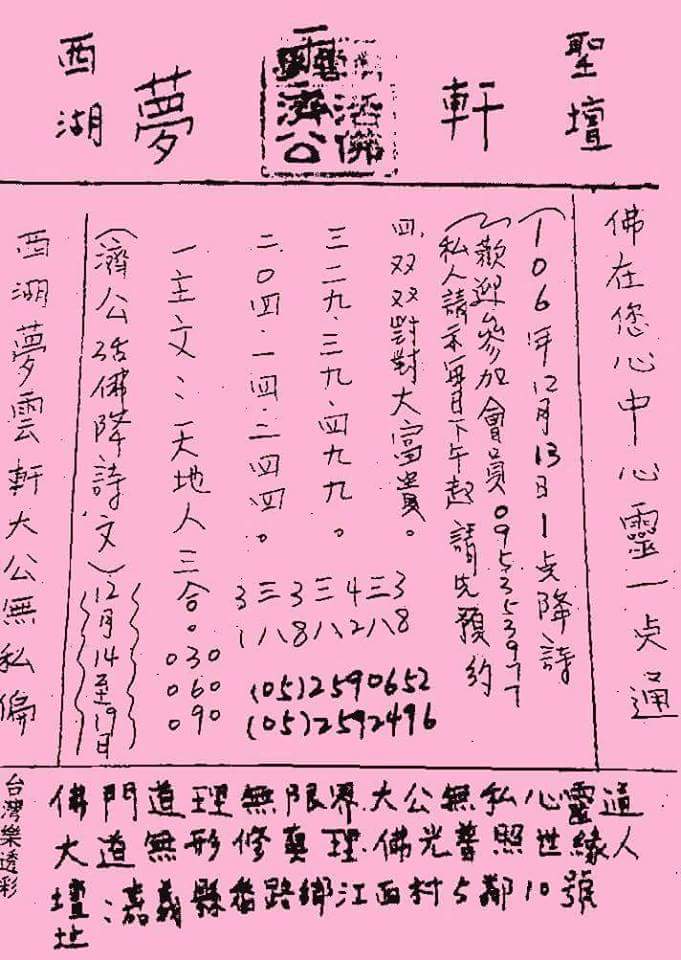 西湖 夢 濟公 活佛 軒 聖壇
佛在您心中心靈一点通
(106年12月13日1点降詩)
(歡迎參加會員0953539977
私人請示每日下午起請先預約
四.双双對對大富貴。
三二九.三九.四九九。
二.0四.一四.二四四。
一主文:天地人三合。
030
060
090
3三3三4三3
1八8八2八8
(05)2590652
(05)2592496
(濟公活佛降詩文)
12月14至19日
西湖夢雲軒大公無私偏
佛門道理無限界.大公無私心靈道
大道無形修真理.佛光普照世緣人
壇址:嘉義縣番路鄉江西村5鄰10號
台灣樂透彩